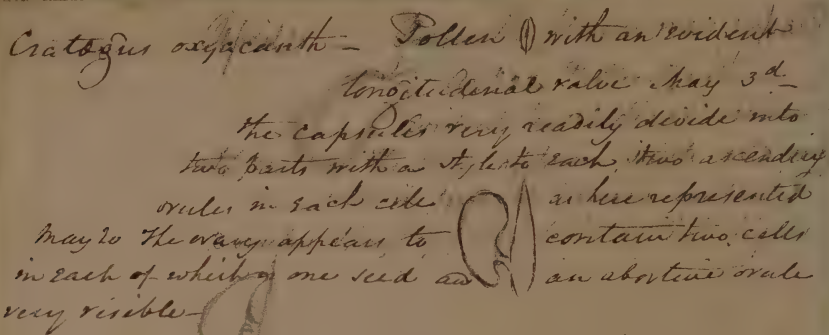 Cratœgus oxyacanth – Pollen with an evident
longitudinal valve May 3d –
the capsules very readily divide into
two parts with a style to each, two ascending
ovules in each cell as here represented
May 20 The ovary appears to contain two cells
in each of which is one seed and an abortive ovule
very visible –